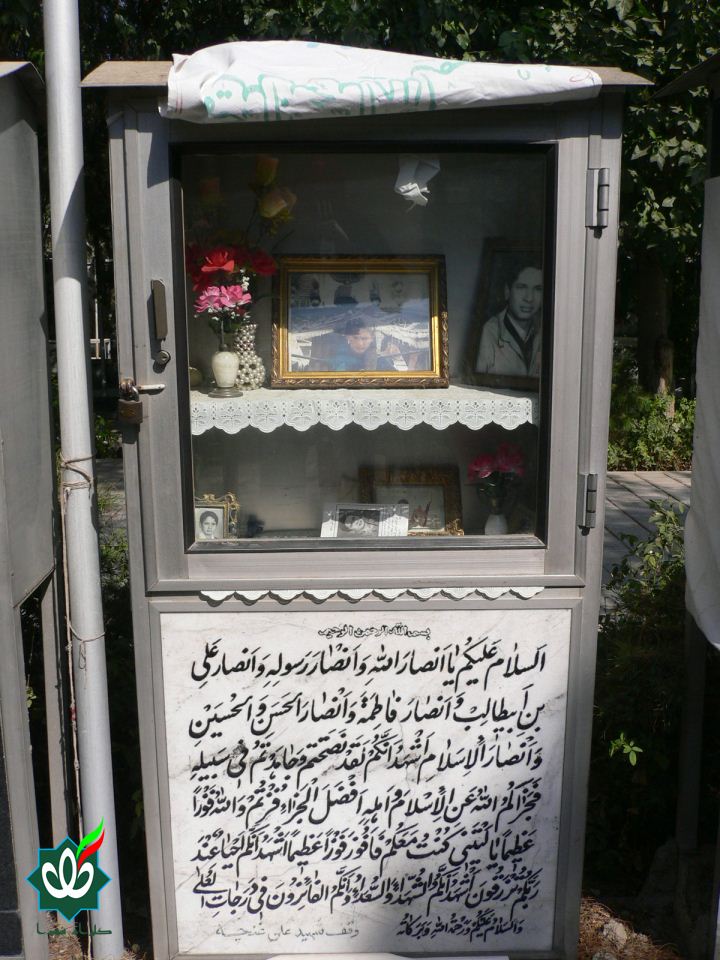 بسم الله الرحمن الرحیم
اَلسَّلامُ عَلَیْکُم یا اَنْصارَ اللهِ وَ اَنْصارَ رَسولِهِ وَ اَنصارَ عَلِی
بنِ اَبیطالِب وَ اَنصارَ فاطِمَةَ وَ اَنْصارَ الحَسَنِ وَ الحُسَیْنِ
وَ اَنْصارَ الاِسلامِ اَشْهَدُ اَنَّکُم لَقَد نَصَحْتُم وَ جاهَدْتُم فی سَبیلِهِ
فَجَزاکُمُ اللهُ عَنِ الاِسْلامِ وَ اَهلِهِ اَفْضَلَ الْجَزاءِ فُزْتُم وَ اللهِ فَوْزاً
عَظیماً یا لَیْتَنی کُنْتُ مَعَکُم فَاَفُوزَ فَوْزاً عَظیماً اَشْهَدُ اَنَّکُم اَحیاءٌ عِنْدَ
رَبِّکُم تُرْزَقُونَ اَشْهَدُ اَنَّکُم الشُّهَداءُ وَ السُّعَداءُ وَ اَنَّکُم الفائِزُونَ فی دَرَجاتِ العُلی
وَ السَّلامُ عَلَیْکُم وَ رَحْمَةُ اللهِ وَ بَرَکاتُهُ
وقف شهید علی